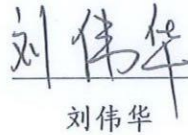 刘伟华
刘伟华